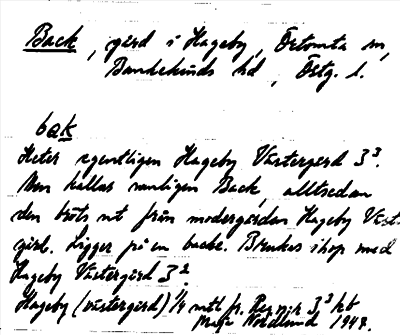 Back, gård i Hageby, Örtomta sn,
Bankekinds hd, Östg. l.
bak
Heter egentligen Hageby Västergård 3³.
Men kallas vanligen Back, alltsedan
den bröts ut från modergården Hageby Väst-
gård. Ligger på en backe. Brukas ihop med
Hageby Västergård 3².
Hageby (västergård) 1/4 mtl fr. Reg.nr 3³ kb
Maja Nordlund 1947.